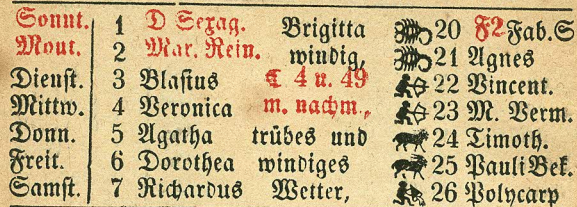 Sonnt. 1 D Sexag. Brigitta 20 F2 Fab. S
Mont. 2 Mar. Rein. windig, 21 Agnes
Dienst. 3 Blasius € 4 u. 49 22 Vincent.
Mittw. 4 Veronica m. nachm., 23 M. Verm.
Donn. 5 Agatha trübes und 24 Timoth.
Freit. 6 Dorothea windiges 25 Pauli Bek.
Samst. 7 Richardus Wetter, 26 Polycarp